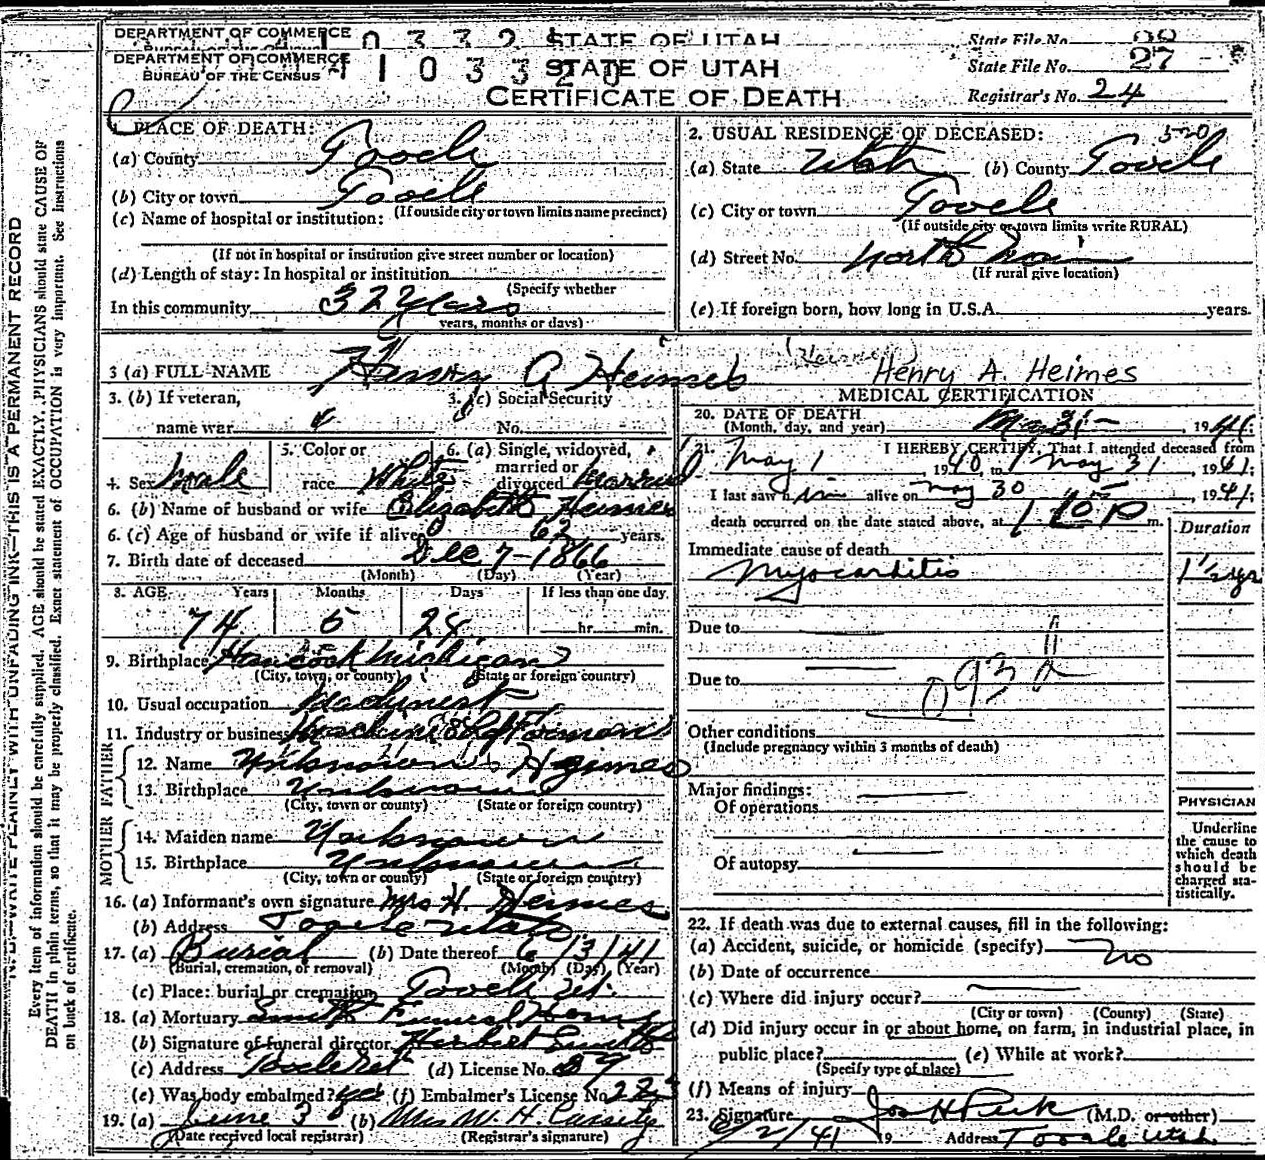 DEPARTMENT OF COMMERCE
STATE OF UTAH
State File No.
DEPARTMENT OF COMMERCE
BUREAU OF THE CENSUS
STATE OF UTAH
State File No. 27
CERTIFICATE OF DEATH
Registrar's No. 24
1. PLACE OF DEATH:
(a) County Tooele
(b) City or town Tooele
(If outside city or town limits name precinct)
(c) Name of hospital or institution:
(If not in hospital or institution give street number or location)
(d) Length of stay: In hospital or institution
(Specify whether
In this community 32 Years
years, months or days)
2. USUAL RESIDENCE OF DECEASED: 520
(a) State Utah (b) County Tooele
(c) City or town Tooele
(If outside city or town limits write RURAL)
(d) Street No. North Main
(If rural give location)
(e) If foreign born, how long in U.S.A. years.
3 (a) FULL NAME Henry A Heimes
Henry A. Heimes
3. (b) If veteran, name war
3. (c) Social Security No.
4. Sex Male
5. Color or race White
6. (a) Single, widowed, married or divorced Married
6. (b) Name of husband or wife Elizabeth Heimes
6. (c) Age of husband or wife if alive 62 years.
7. Birth date of deceased Dec 7-1866
(Month) (Day) (Year)
8. AGE Years Months Days If less than one day
74 5 24 hr. min.
9. Birthplace Hancock Michigan
(City, town, or county) (State or foreign country)
10. Usual occupation Machinist
11. Industry or business Machine Forman
FATHER
12. Name Unknown Heimes
13. Birthplace Unknown
(City, town or county) (State or foreign country)
MOTHER
14. Maiden name Unknown
15. Birthplace Unknown
(City, town or county) (State or foreign country)
16. (a) Informant's own signature Mrs H. Heimes
(b) Address Tooele Utah
17. (a) Burial (b) Date thereof 6/3/41
(Burial, cremation, or removal) (Month) (Day) (Year)
(c) Place: burial or cremation Tooele Ut.
18. (a) Mortuary Smith Funeral Home
(b) Signature of funeral director Herbert Smith
(c) Address Tooele Ut (d) License No. 89
(e) Was body embalmed? yes (f) Embalmer's License No. 223
19. (a) June 3 (b) Mrs W. H. Cassity
(Date received local registrar) (Registrar's signature)
MEDICAL CERTIFICATION
20. DATE OF DEATH
(Month, day, and year) May 31- , 1941;
21. I HEREBY CERTIFY, That I attended deceased from
May 1 1940, to May 31, 1941;
I last saw him alive on May 30, 1941;
death occurred on the date stated above, at m.
Duration
Immediate cause of death
Myocarditis 1 1/2 yrs
Due to
Due to
093d
Other conditions
(Include pregnancy within 3 months of death)
Major findings:
Of operations
Of autopsy
PHYSICIAN
Underline
the cause to
which death
should be
charged sta-
tistically.
22. If death was due to external causes, fill in the following:
(a) Accident, suicide, or homicide (specify) no
(b) Date of occurrence
(c) Where did injury occur?
(City or town) (County) (State)
(d) Did injury occur in or about home, on farm, in industrial place, in
public place? (e) While at work?
(Specify type of place)
(f) Means of injury
23. Signature Jos H Peck (M.D. or other)
6/2/41 19 Address Tooele Utah.
N.B.—WRITE PLAINLY WITH UNFADING INK—THIS IS A PERMANENT RECORD
Every item of information should be carefully supplied. AGE should be stated EXACTLY. PHYSICIANS should state CAUSE OF
DEATH in plain terms, so that it may be properly classified. Exact statement of OCCUPATION is very important. See Instructions
on back of certificate.